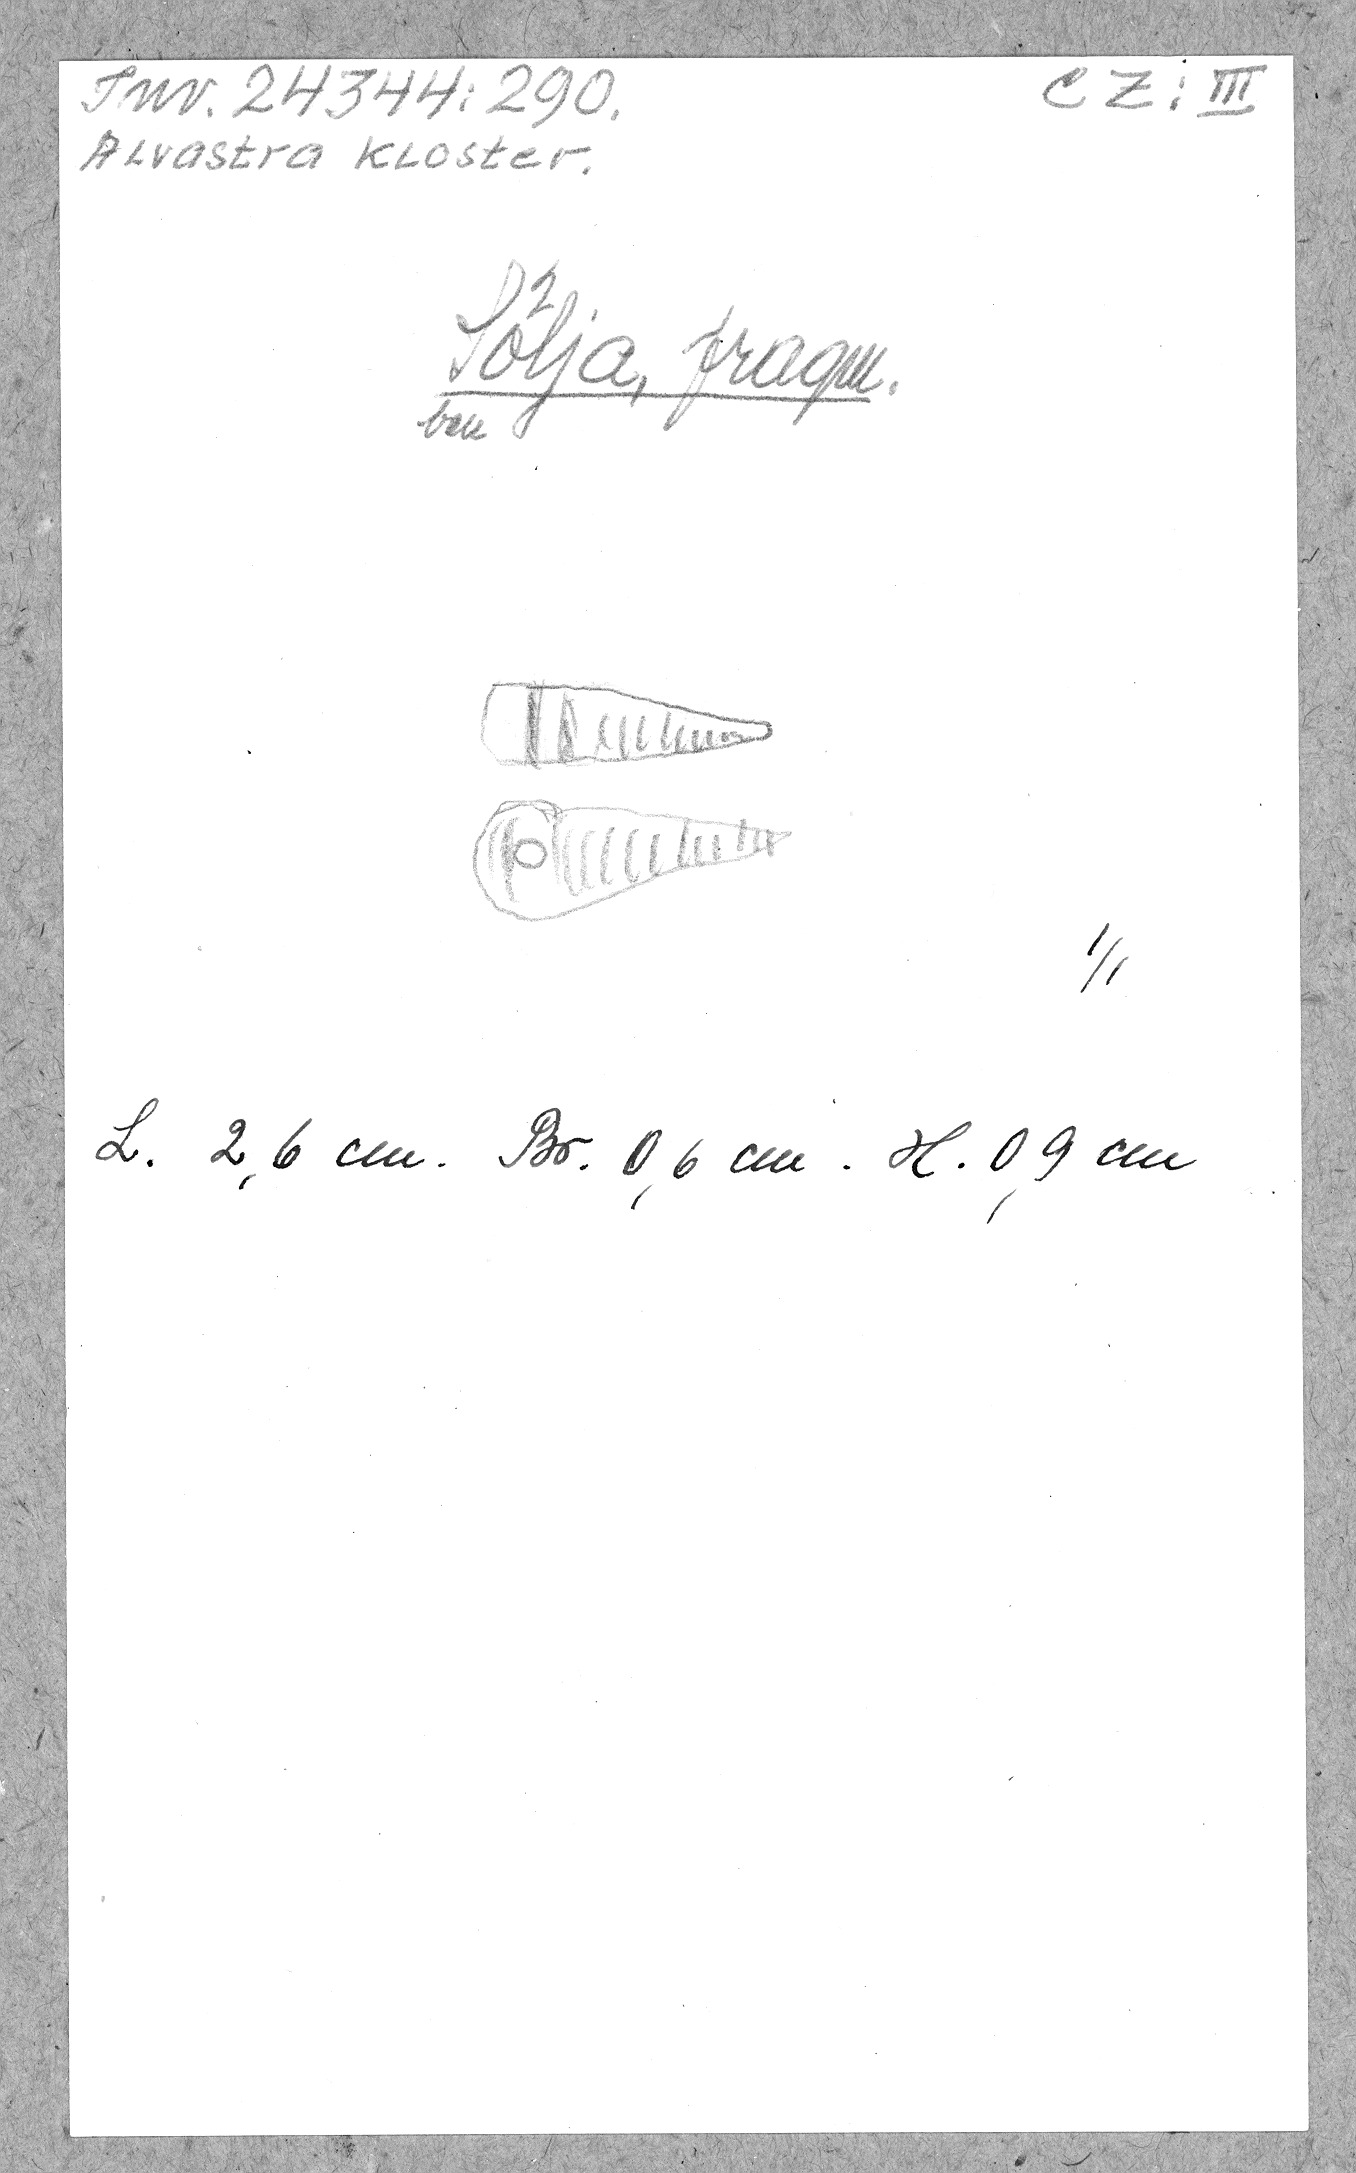 Inv. 24344:290.
CZ:III
Alvastra kloster.
Sölja, fragm.
ben
1/1
L. 2,6 cm. Br. 0,6 cm. H. 0,9 cm